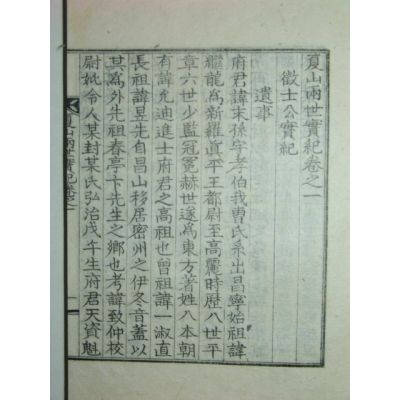 夏山兩世實紀卷之一
徵士公實紀
遺事
府君諱末孫字孝伯我曺氏系出昌寧始祖諱
繼龍爲新羅眞平王都尉至高麗時歷八世平
章六世少監冠冕赫世遂爲東方著姓入本朝
有諱允迪進士府君之高祖也曾祖諱一淑直
長祖諱昱先自昌山移居密州之伊冬音蓋以
其爲外先祖春亭卞先生之鄕也考諱致仲校
尉妣令人某封某氏弘治戊午生府君天資魁
山兩世實紀卷之一